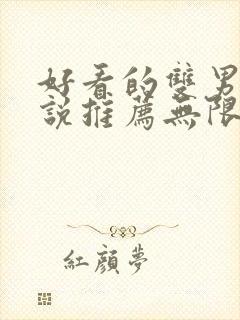 好看的雙男
說推薦無限
紅顏夢